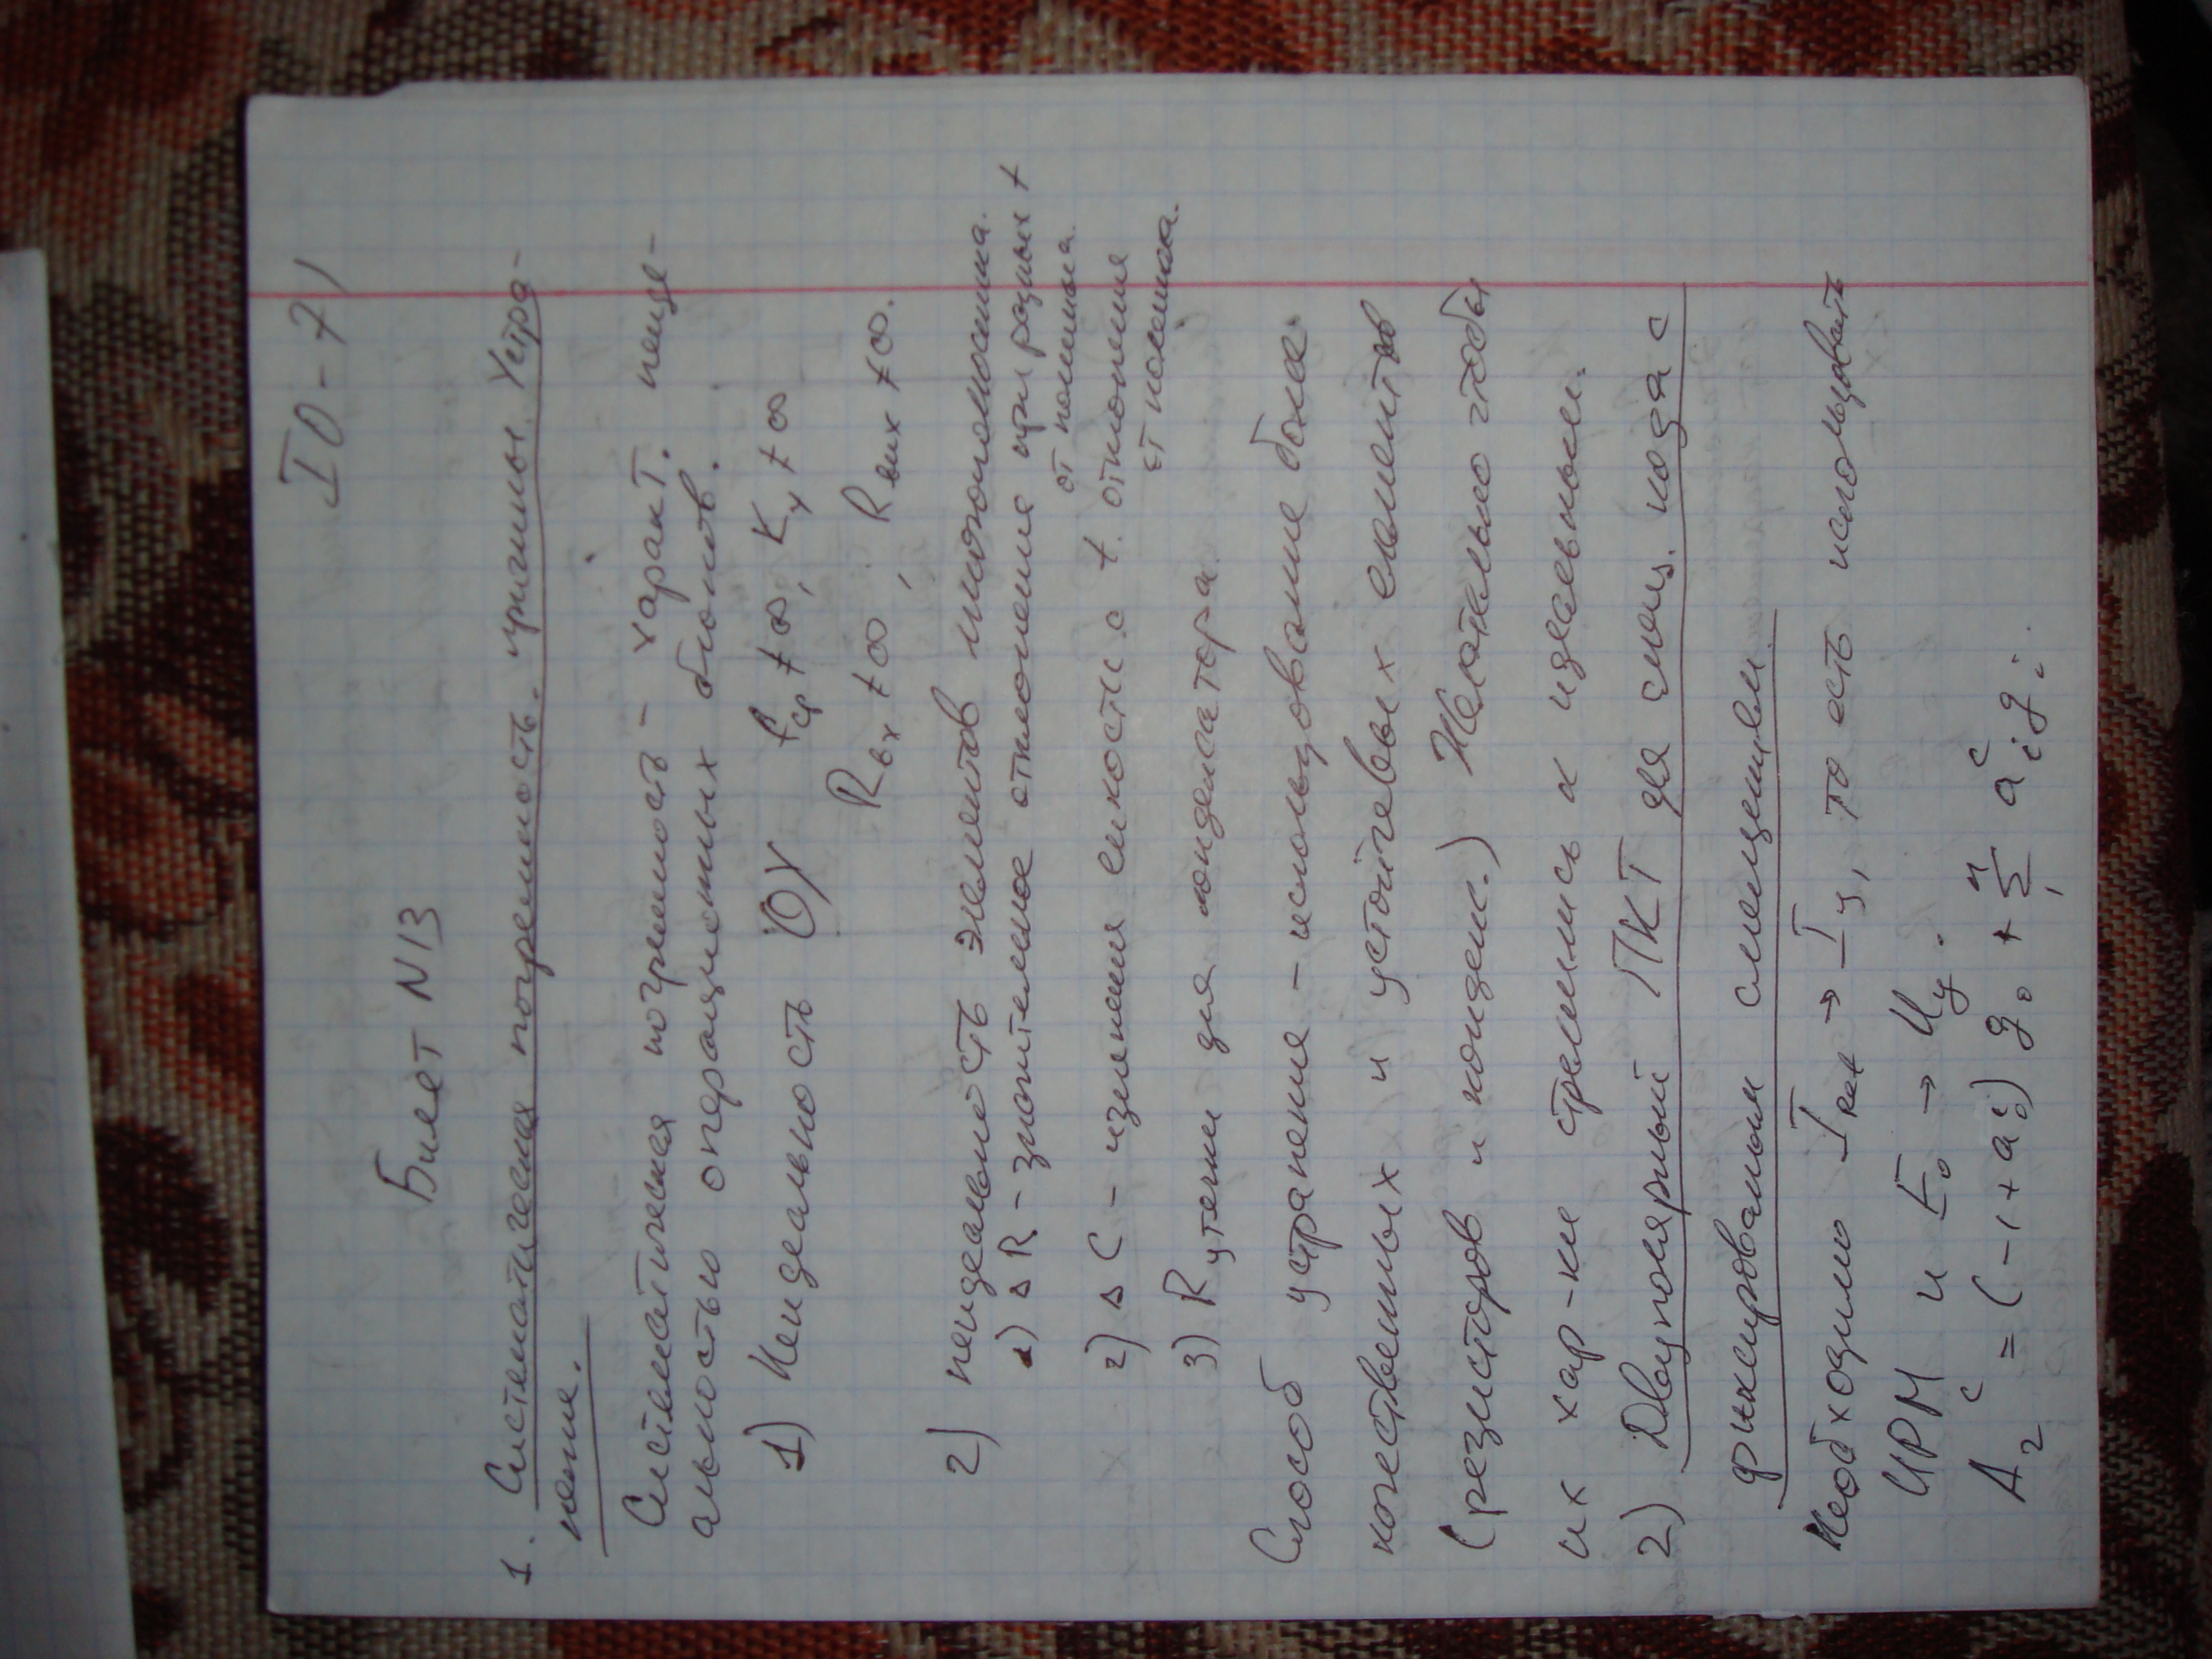 IО-71
Билет N13
1. Систематическая погрешность. причины. Устра-
нение.
Систематическая погрешность - характ. неиде-
альностью операционных блоков.
1) Неидеальность ОУ fср ≠ ∞, Kу ≠ ∞
Rвх ≠ ∞, Rвых ≠ ∞.
2) неидеальность элементов
1) ΔR - значительное отклонение при разных t
от номинала.
2) ΔC - изменения емкости с t. отклонения
от номинала.
3) Rутечки для конденсатора.
Способ устранения - использование более
качественных и устойчевых елементов
(резисторов и конденс.) Желательно чтобы
их хар-ки стремились к идеальным.
2) Двуполярный ПКТ для смещ. кода с
фиксированым смещением.
Необходимо Iref → Iу, то есть использовать
ИРМ и E₀ → Uу.
A₂ᶜ = (-1 + aᶜ₀) g₀ + Σ₁ⁿ aᶜᵢ gᵢ